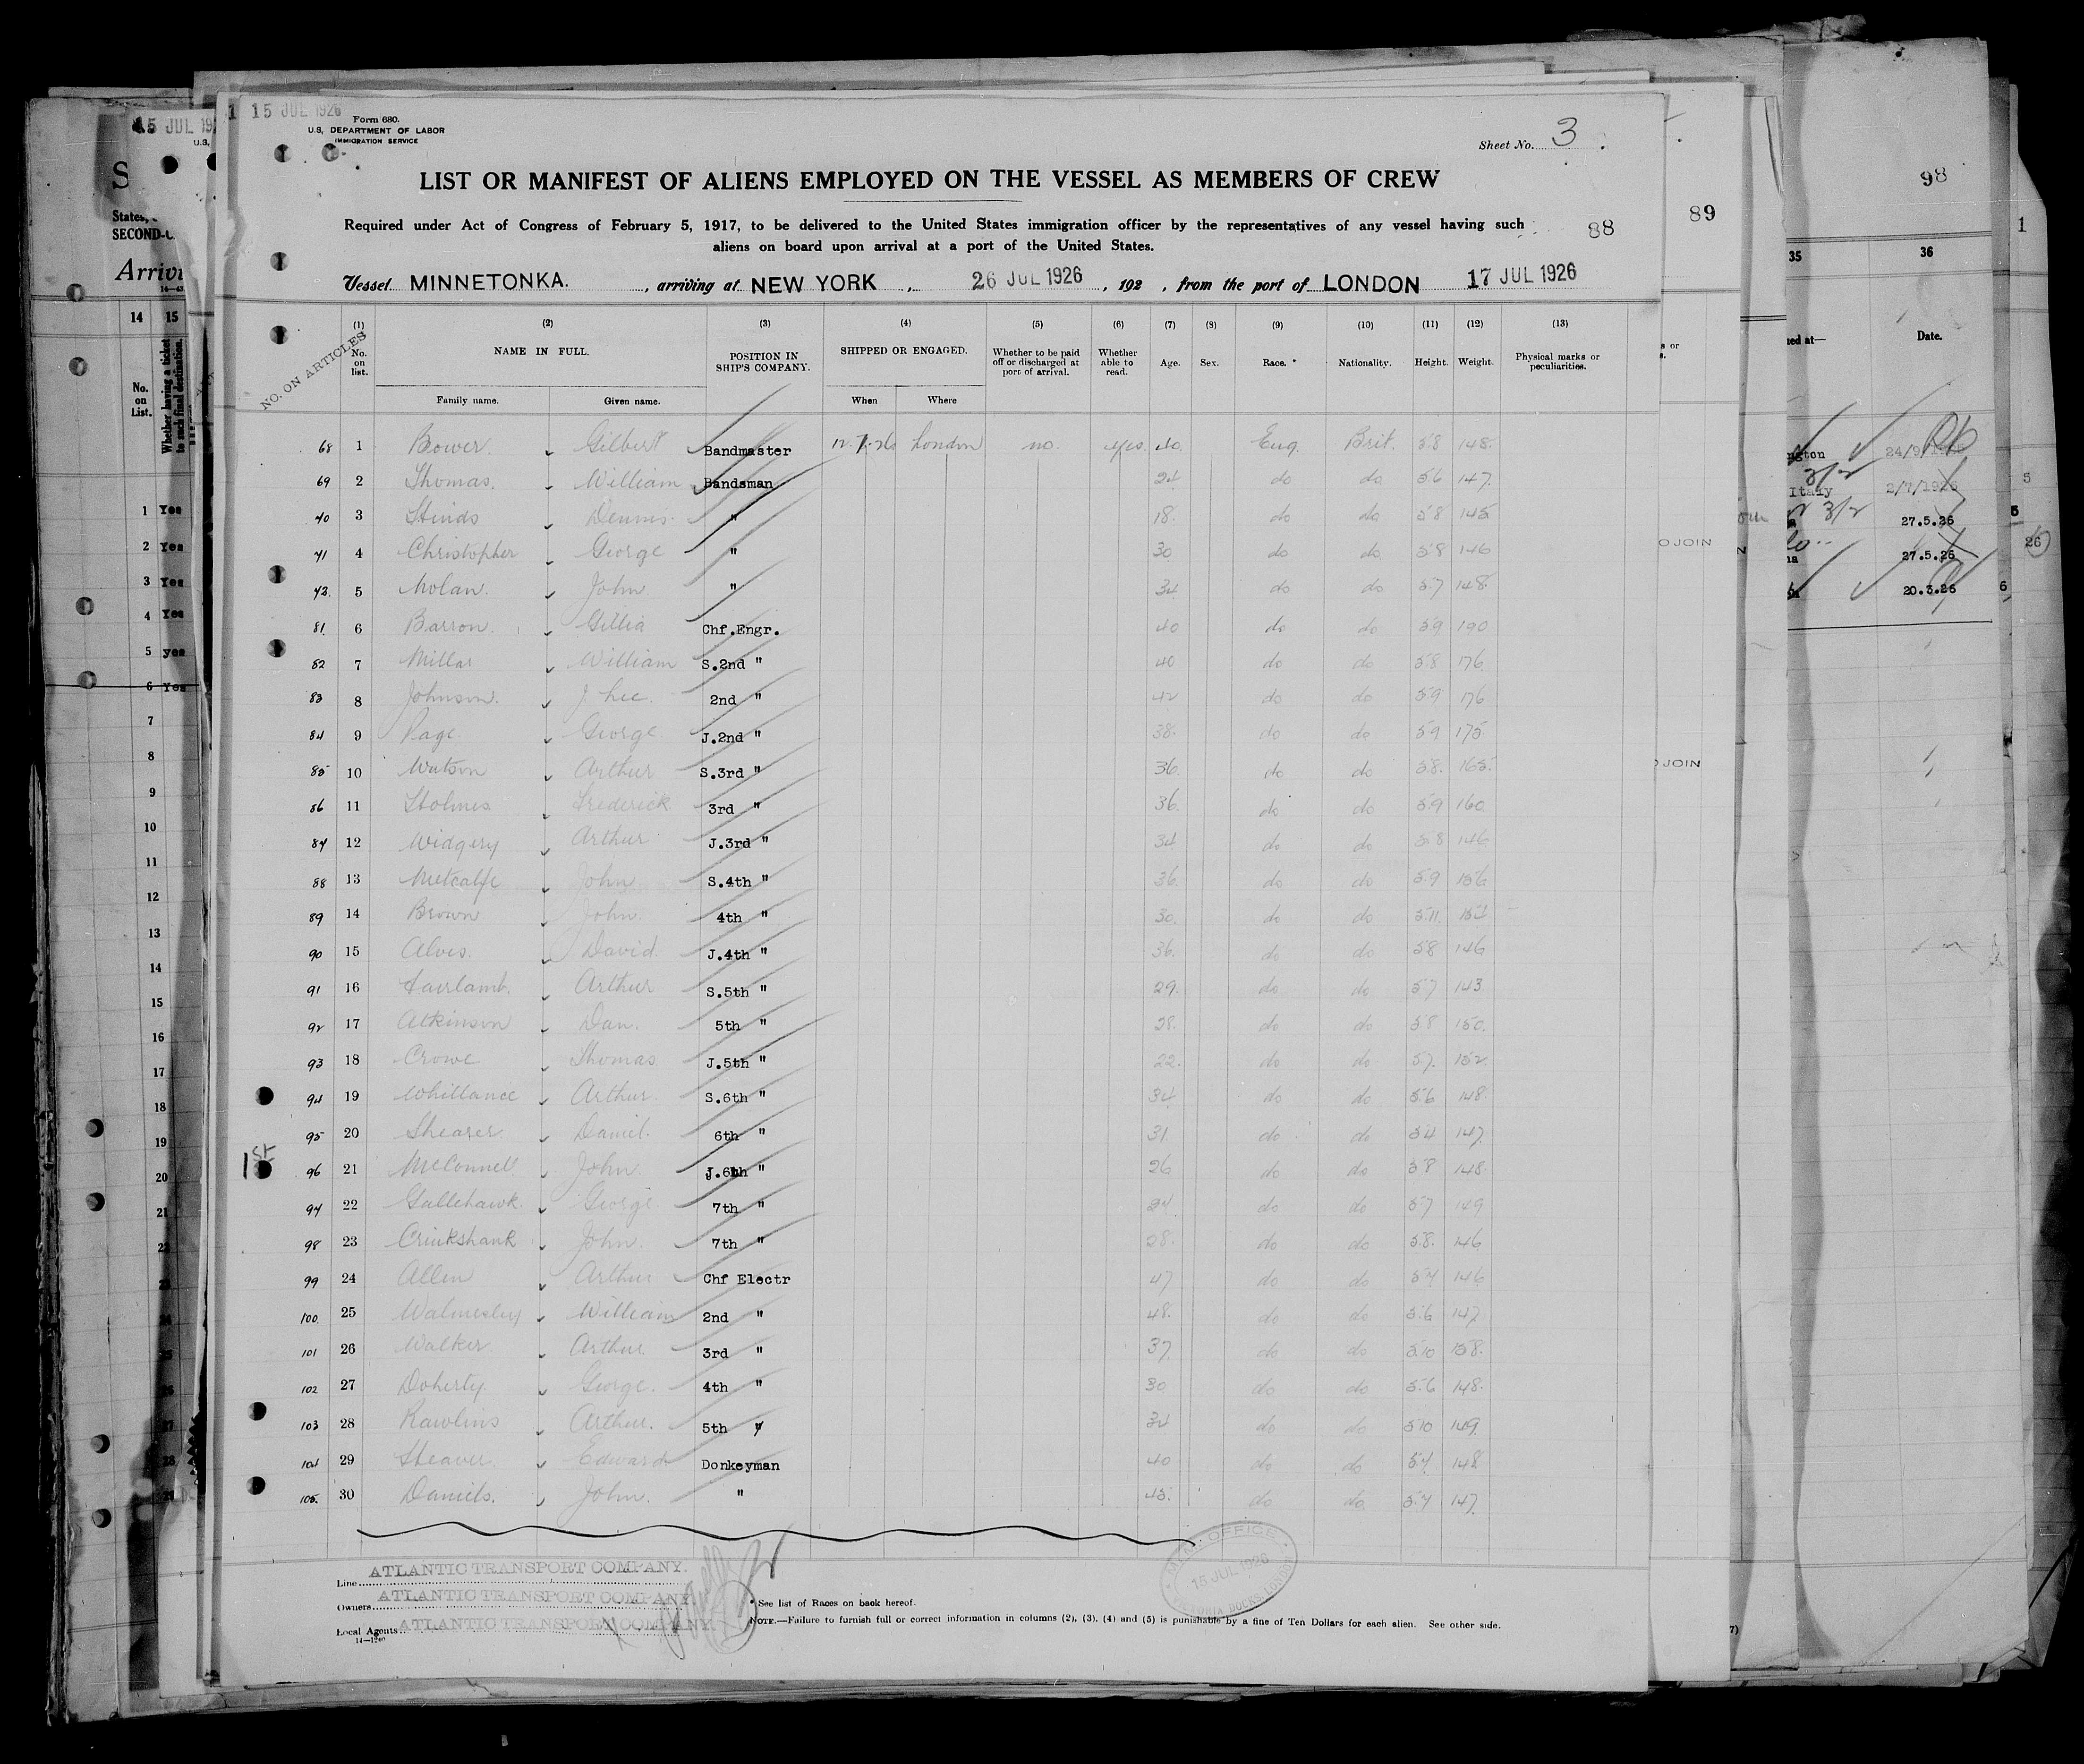 15 JUL 1926
Form 680.
U.S. DEPARTMENT OF LABOR
IMMIGRATION SERVICE
Sheet No. 3
LIST OR MANIFEST OF ALIENS EMPLOYED ON THE VESSEL AS MEMBERS OF CREW
Required under Act of Congress of February 5, 1917, to be delivered to the United States immigration officer by the representatives of any vessel having such
aliens on board upon arrival at a port of the United States.
88
Vessel MINNETONKA. , arriving at NEW YORK , 26 JUL 1926 , 192 , from the port of LONDON 17 JUL 1926
NO. ON ARTICLES
(1) (2) (3) (4) (5) (6) (7) (8) (9) (10) (11) (12) (13)
No. on list. NAME IN FULL. POSITION IN SHIP'S COMPANY. SHIPPED OR ENGAGED. Whether to be paid off or discharged at port of arrival. Whether able to read. Age. Sex. Race.* Nationality. Height. Weight. Physical marks or peculiarities.
Family name. Given name. When Where
68 1 Bower Gilbert Bandmaster 12.7.26 London no. yes 40. Eng. Brit. 5.8 148.
69 2 Thomas. William Bandsman 24 do do 5.6 147.
40 3 Hinds Dennis " 18. do do 5.8 145
41 4 Christopher George " 30 do do 5.8 146
42. 5 Nolan. John " 34 do do 5.7 148.
81. 6 Barron. Chf.Engr. 40 do do 5.9 190
82 7 Millar William S.2nd " 40 do do 5.8 176.
83 8 Johnson. J Lee. 2nd " 42 do do 5.9 176
84 9 Page George J.2nd " 38. do do 5.9 175
85 10 Watson Arthur S.3rd " 36. do do 5.8. 165.
86 11 Holmes Frederick 3rd " 36. do do 5.9 160.
87 12 Widgery Arthur J.3rd " 34 do do 5.8 146
88 13 Metcalfe John S.4th " 36. do do 5.9 156
89 14 Brown John. 4th " 30. do do 5.11.
90 15 Alves. David. J.4th " 36. do do 5.8 146
91 16 Fairlamb. Arthur S.5th " 29. do do 5.7 143
92 17 Atkinson Dan. 5th " 28. do do 5.8 150.
93 18 Crowe Thomas J.5th " 22. do do 5.7. 152.
94 19 Whillance Arthur. S.6th " 34 do do 5.6 148.
95 20 Shearer Daniel. 6th " 31 do do 5.4 147.
96 21 McConnell John. J.6th " 26 do do 5.8 148.
97 22 Gallehawk. George 7th " 24 do do 5.7 149
98 23 Cruikshank John. 7th " 28. do do 5.8. 146
99 24 Allen Arthur Chf Electr 47 do do 5.7 146
100. 25 Walmesley William 2nd " 48. do do 5.6 147
101 26 Walker. Arthur. 3rd " 37. do do 5.10 158.
102 27 Doherty. George. 4th " 30 do do 5.6 148.
103 28 Rawlins Arthur. 5th " 34 do do 5.10 149.
104 29 Heaver Edward Donkeyman 40 do do 5.7. 148.
105. 30 Daniels. John. " 45. do do 5.7 147.
1st
Line ATLANTIC TRANSPORT COMPANY.
Owners ATLANTIC TRANSPORT COMPANY.
Local Agents ATLANTIC TRANSPORT COMPANY.
14—1240
* See list of Races on back hereof.
NOTE.—Failure to furnish full or correct information in columns (2), (3), (4) and (5) is punishable by a fine of Ten Dollars for each alien. See other side.
OFFICE
15 JUL 1926
89
O JOIN
JOIN
98
35 36
Date.
Italy
2/7/1926
27.5.26
27.5.26
20.3.26
15 JUL
States,
SECOND-C
14 15
No. on List.
Whether having a ticket to such final destination.
1 Yes
2 Yes
3 Yes
4 Yes
5 yes
6 Yes
7
8
9
10
11
12
13
14
15
16
17
18
19
20
21